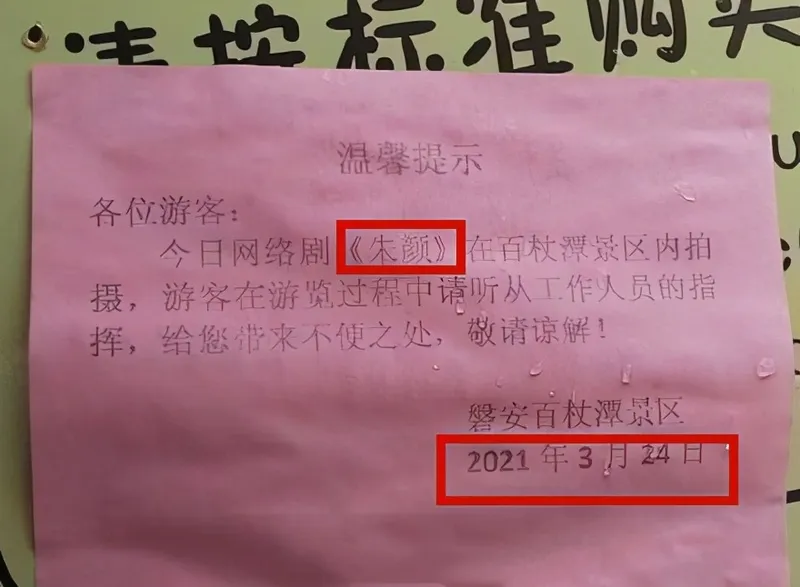 请按标准购买
温馨提示
各位游客：
今日网络剧《朱颜》在百杖潭景区内拍
摄，游客在游览过程中请听从工作人员的指
挥，给您带来不便之处，敬请谅解！
磐安百杖潭景区
2021 年 3 月 24 日